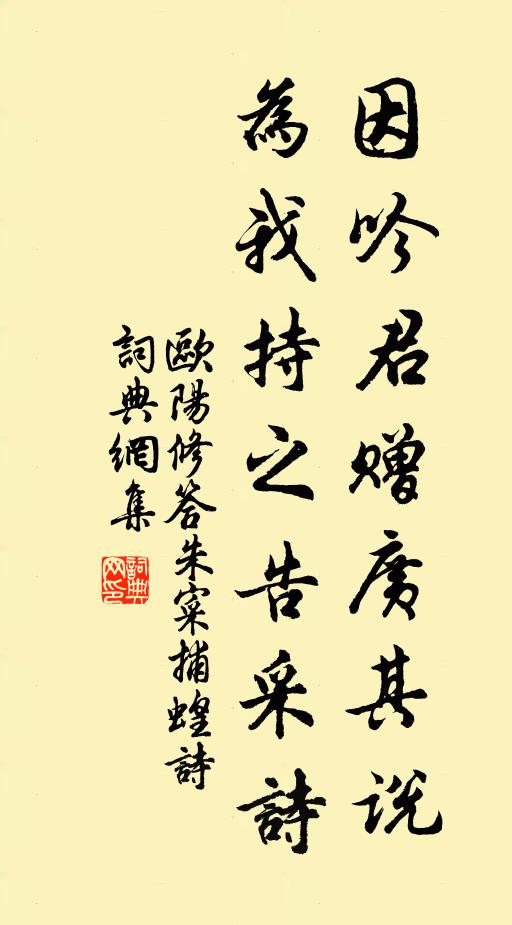 因吟君赠廣其説
為我持之告采詩
歐陽修答朱寀捕蝗詩
詞典網集
詞典网印